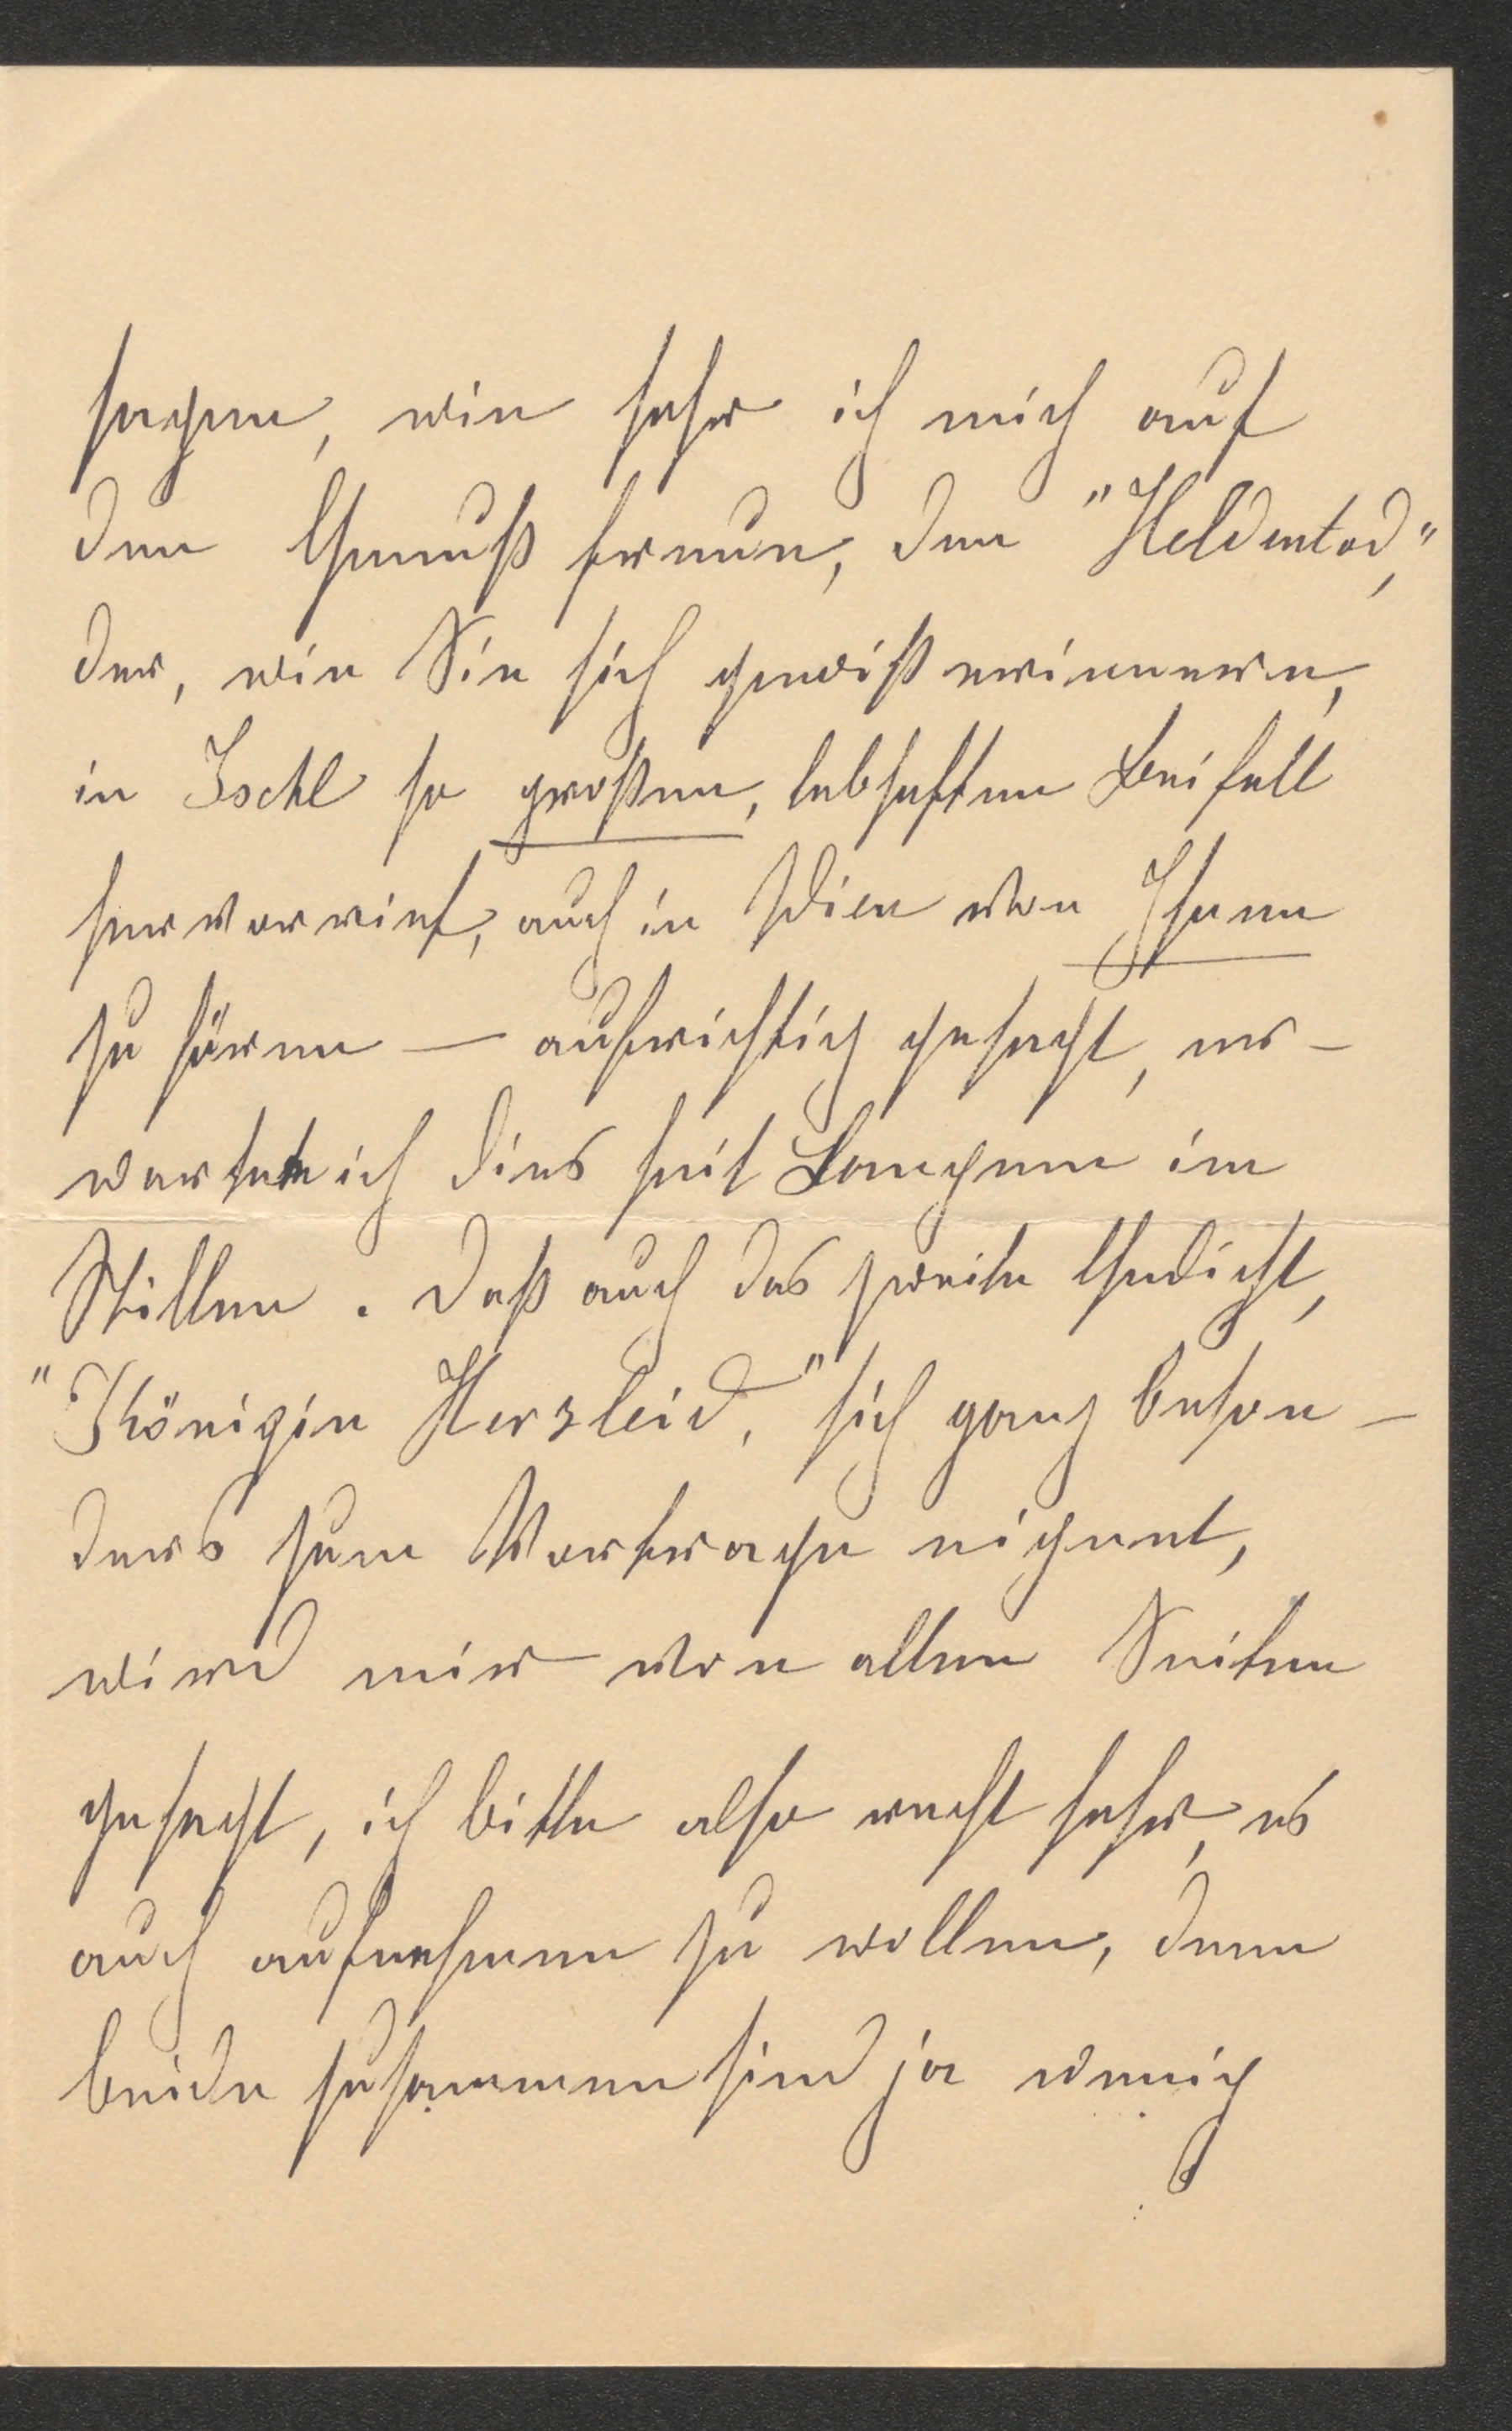 sagen, wie sehr ich mich auf
den Genuß freue, den "Heldentod,"
der, wie Sie sich gewiß erinnern,
in Ischl so großen, lebhaften Beifall
hervorrief, auch in Wien von Ihnen
zu hören — aufrichtig gesagt, er-
wartete ich dies seit Langem im
Stillen. Daß auch das zweite Gedicht,
"Königin Herzleid," sich ganz beson-
ders zum Vortrage eignet,
wird mir von allen Seiten
gesagt, ich bitte also recht sehr, es
auch aufnehmen zu wollen, denn
beide zusammen sind ja wenig